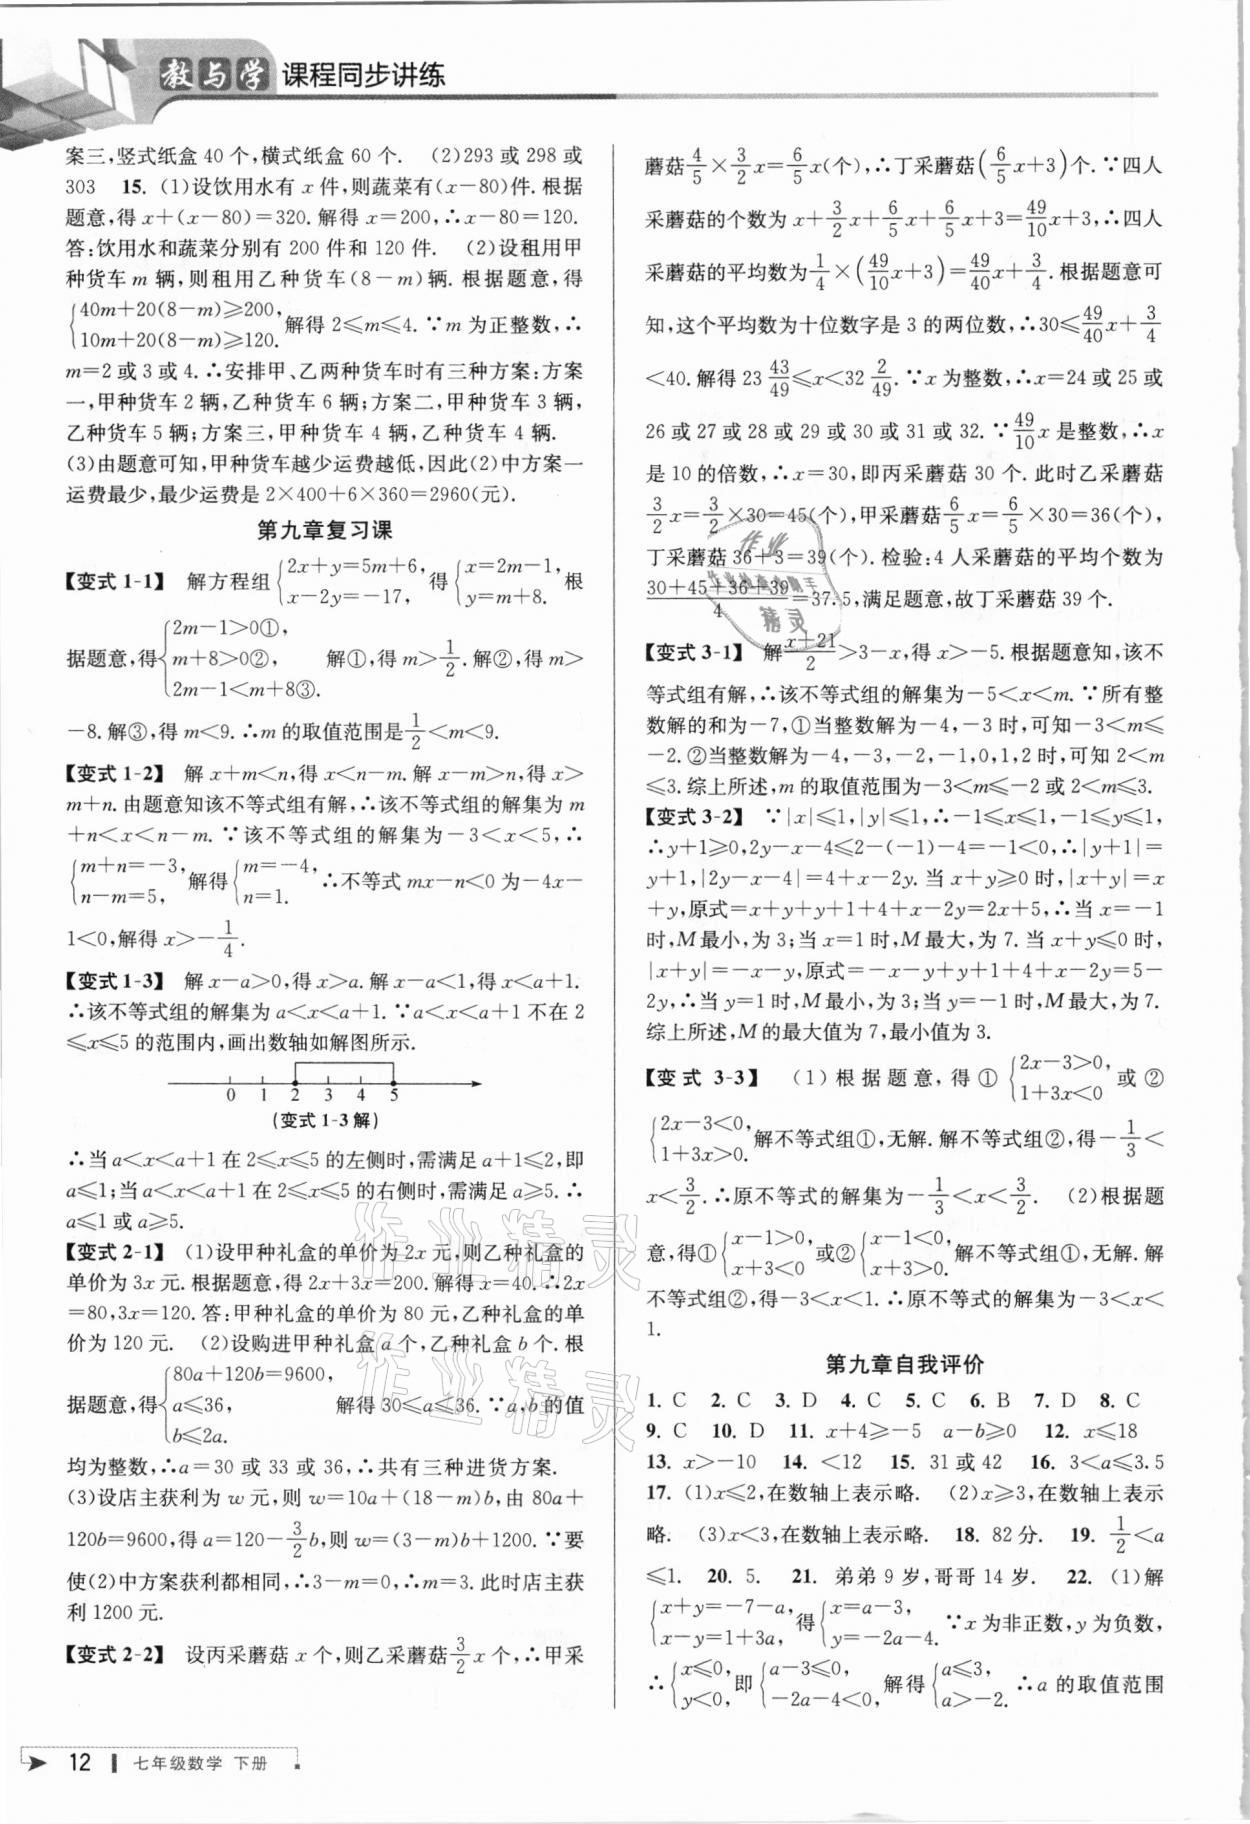 教与学 课程同步讲练
案三,竖式纸盒 40 个,横式纸盒 60 个. (2)293 或 298 或
303 15. (1)设饮用水有 x 件,则蔬菜有(x-80)件. 根据
题意,得 x+(x-80)=320. 解得 x=200,∴x-80=120.
答:饮用水和蔬菜分别有 200 件和 120 件. (2)设租用甲
种货车 m 辆,则租用乙种货车(8-m)辆. 根据题意,得
{40m+20(8-m)≥200, 10m+20(8-m)≥120. 解得 2≤m≤4. ∵m 为正整数,∴
m=2 或 3 或 4. ∴安排甲、乙两种货车时有三种方案:方案
一,甲种货车 2 辆,乙种货车 6 辆;方案二,甲种货车 3 辆,
乙种货车 5 辆;方案三,甲种货车 4 辆,乙种货车 4 辆.
(3)由题意可知,甲种货车越少运费越低,因此(2)中方案一
运费最少,最少运费是 2×400+6×360=2960(元).
第九章复习课
【变式 1-1】 解方程组{2x+y=5m+6, x-2y=-17, 得{x=2m-1, y=m+8. 根
据题意,得{2m-1>0①, m+8>0②, 2m-1<m+8③. 解①,得 m>1/2. 解②,得 m>
-8. 解③,得 m<9. ∴m 的取值范围是1/2<m<9.
【变式 1-2】 解 x+m<n,得 x<n-m. 解 x-m>n,得 x>
m+n. 由题意知该不等式组有解,∴该不等式组的解集为 m
+n<x<n-m. ∵该不等式组的解集为-3<x<5,∴
{m+n=-3, n-m=5, 解得{m=-4, n=1. ∴不等式 mx-n<0 为-4x-
1<0,解得 x>-1/4.
【变式 1-3】 解 x-a>0,得 x>a. 解 x-a<1,得 x<a+1.
∴该不等式组的解集为 a<x<a+1. ∵a<x<a+1 不在 2
≤x≤5 的范围内,画出数轴如解图所示.
0 1 2 3 4 5
(变式 1-3 解)
∴当 a<x<a+1 在 2≤x≤5 的左侧时,需满足 a+1≤2,即
a≤1;当 a<x<a+1 在 2≤x≤5 的右侧时,需满足 a≥5. ∴
a≤1 或 a≥5.
【变式 2-1】 (1)设甲种礼盒的单价为 2x 元,则乙种礼盒的
单价为 3x 元. 根据题意,得 2x+3x=200. 解得 x=40. ∴2x
=80,3x=120. 答:甲种礼盒的单价为 80 元,乙种礼盒的单
价为 120 元. (2)设购进甲种礼盒 a 个,乙种礼盒 b 个. 根
据题意,得{80a+120b=9600, a≤36, b≤2a. 解得 30≤a≤36. ∵a,b 的值
均为整数,∴a=30 或 33 或 36,∴共有三种进货方案.
(3)设店主获利为 w 元,则 w=10a+(18-m)b,由 80a+
120b=9600,得 a=120-3/2b,则 w=(3-m)b+1200. ∵要
使(2)中方案获利都相同,∴3-m=0,∴m=3. 此时店主获
利 1200 元.
【变式 2-2】 设丙采蘑菇 x 个,则乙采蘑菇3/2x 个,∴甲采
蘑菇4/5×3/2x=6/5x(个),∴丁采蘑菇(6/5x+3)个. ∵四人
采蘑菇的个数为 x+3/2x+6/5x+6/5x+3=49/10x+3,∴四人
采蘑菇的平均数为1/4×(49/10x+3)=49/40x+3/4. 根据题意可
知,这个平均数为十位数字是 3 的两位数,∴30≤49/40x+3/4
<40. 解得 23 43/49≤x<32 2/49. ∵x 为整数,∴x=24 或 25 或
26 或 27 或 28 或 29 或 30 或 31 或 32. ∵49/10x 是整数,∴x
是 10 的倍数,∴x=30,即丙采蘑菇 30 个. 此时乙采蘑菇
3/2x=3/2×30=45(个),甲采蘑菇6/5x=6/5×30=36(个),
丁采蘑菇 36+3=39(个). 检验:4 人采蘑菇的平均个数为
(30+45+36+39)/4=37.5,满足题意,故丁采蘑菇 39 个.
【变式 3-1】 解(x+21)/2>3-x,得 x>-5. 根据题意知,该不
等式组有解,∴该不等式组的解集为-5<x<m. ∵所有整
数解的和为-7,①当整数解为-4,-3 时,可知-3<m≤
-2. ②当整数解为-4,-3,-2,-1,0,1,2 时,可知 2<m
≤3. 综上所述,m 的取值范围为-3<m≤-2 或 2<m≤3.
【变式 3-2】 ∵|x|≤1,|y|≤1,∴-1≤x≤1,-1≤y≤1,
∴y+1≥0,2y-x-4≤2-(-1)-4=-1<0,∴|y+1|=
y+1,|2y-x-4|=4+x-2y. 当 x+y≥0 时,|x+y|=x
+y,原式=x+y+y+1+4+x-2y=2x+5,∴当 x=-1
时,M 最小,为 3;当 x=1 时,M 最大,为 7. 当 x+y≤0 时,
|x+y|=-x-y,原式=-x-y+y+1+4+x-2y=5-
2y,∴当 y=1 时,M 最小,为 3;当 y=-1 时,M 最大,为 7.
综上所述,M 的最大值为 7,最小值为 3.
【变式 3-3】 (1)根据题意,得①{2x-3>0, 1+3x<0 或②
{2x-3<0, 1+3x>0. 解不等式组①,无解. 解不等式组②,得-1/3<
x<3/2. ∴原不等式的解集为-1/3<x<3/2. (2)根据题
意,得①{x-1>0, x+3<0 或②{x-1<0, x+3>0. 解不等式组①,无解. 解
不等式组②,得-3<x<1. ∴原不等式的解集为-3<x<
1.
第九章自我评价
1. C 2. C 3. D 4. C 5. C 6. B 7. D 8. C
9. C 10. D 11. x+4≥-5 a-b≥0 12. x≤18
13. x>-10 14. <12 15. 31 或 42 16. 3<a≤3.5
17. (1)x≤2,在数轴上表示略. (2)x≥3,在数轴上表示
略. (3)x<3,在数轴上表示略. 18. 82 分. 19. 1/2<a
≤1. 20. 5. 21. 弟弟 9 岁,哥哥 14 岁. 22. (1)解
{x+y=-7-a, x-y=1+3a, 得{x=a-3, y=-2a-4. ∵x 为非正数,y 为负数,
∴{x≤0, y<0, 即{a-3≤0, -2a-4<0, 解得{a≤3, a>-2. ∴a 的取值范围
12 七年级数学 下册
作业精灵
作业精灵